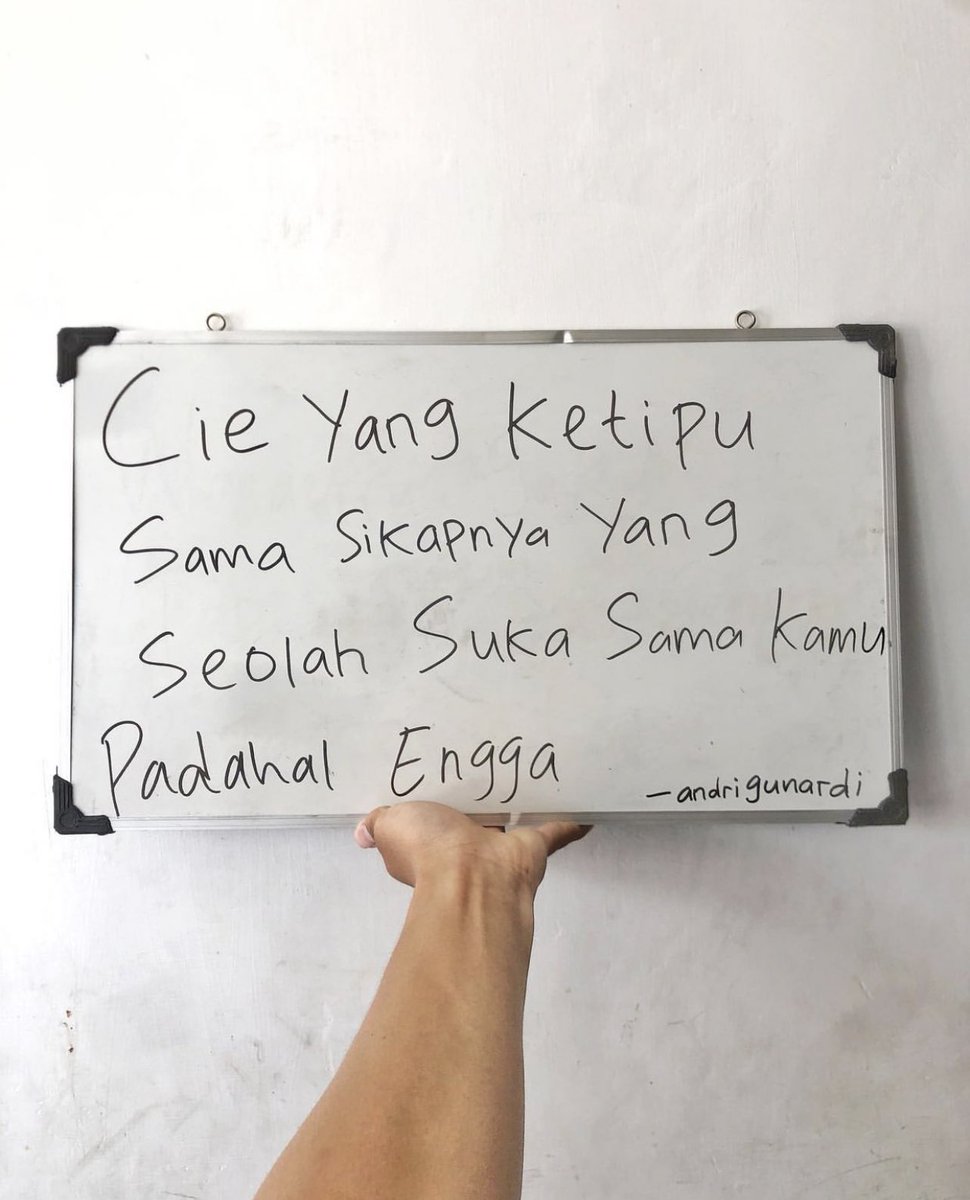 Cie Yang Ketipu
Sama Sikapnya Yang
Seolah Suka Sama Kamu
Padahal Engga
—andrigunardi